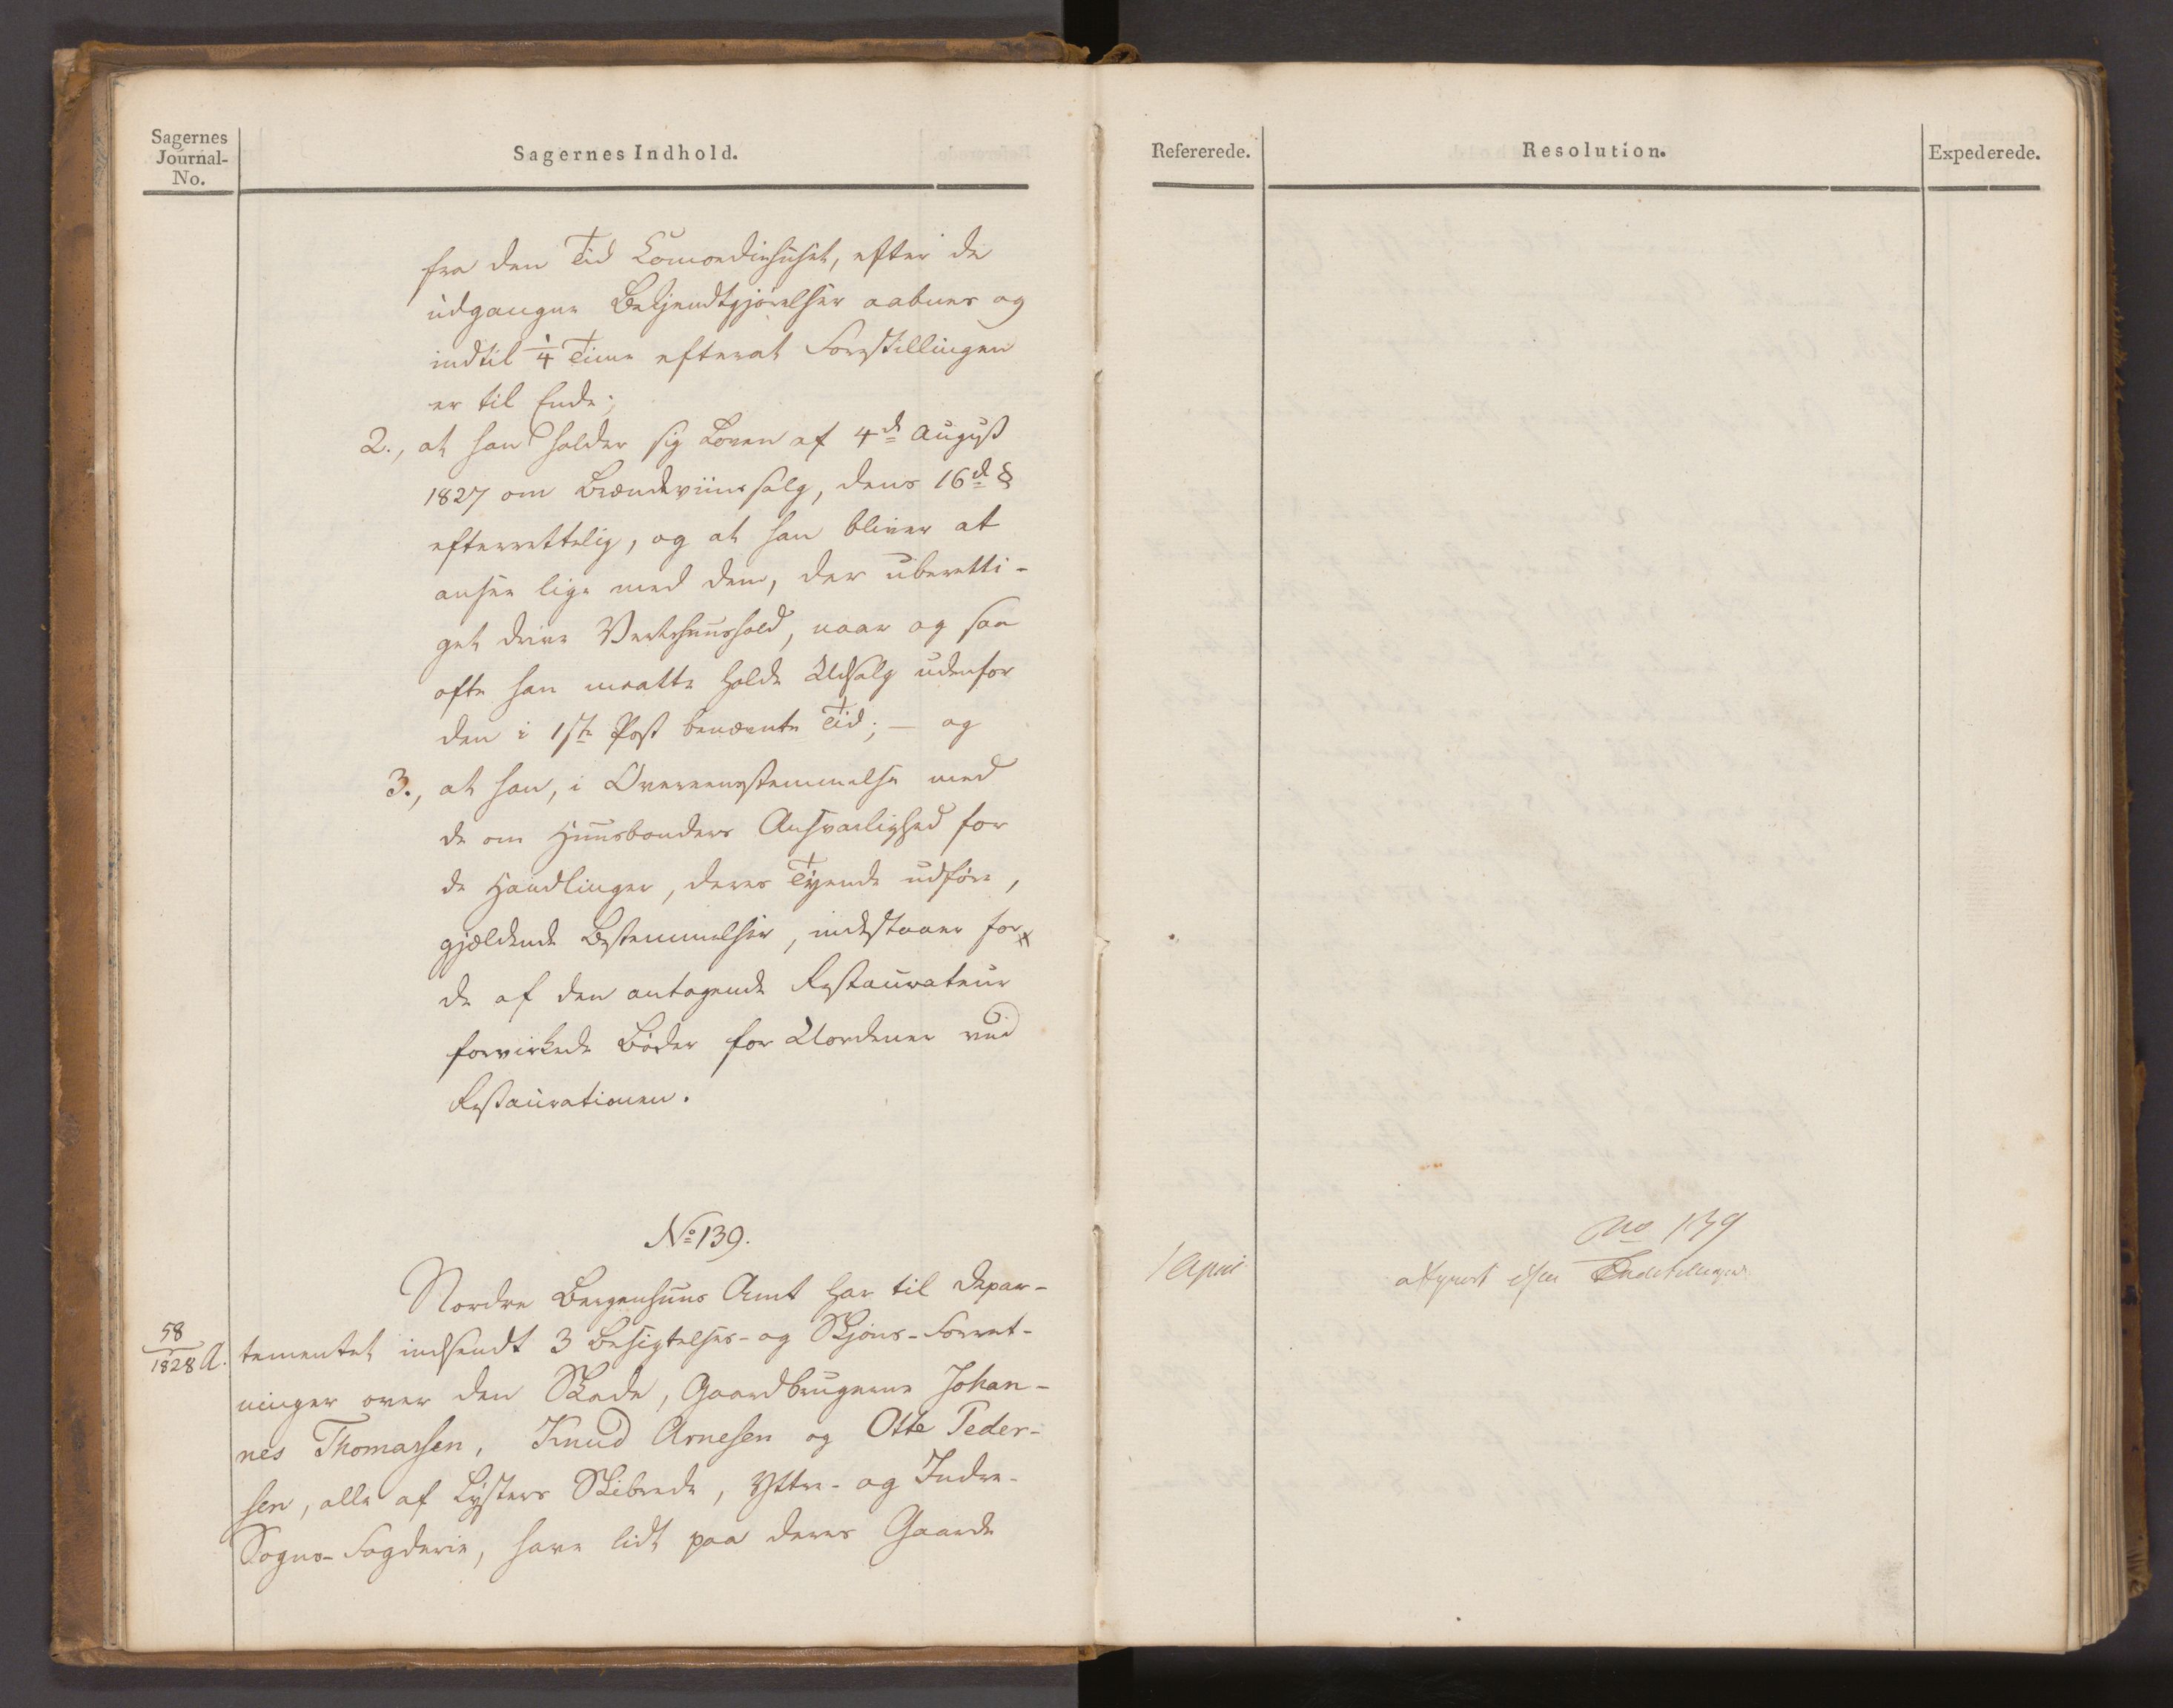 Sagernes
Journal-
No.
Sagernes Indhold.
fra den Tid Comoediehuset, efter de
udgangne Bekjendtgjørelser aabnes og
indtil 1/4 Time efterat Forestillingen
er til Ende;
2., at han holder sig Loven af 4de August
1827 om Brændeviinssalg, dens 16de §
efterrettelig, og at han bliver at
ansee lige med dem, der uberetti-
get drive Vertshuushold, naar og saa
ofte han maatte holde Udsalg udenfor
den i 1ste Post benævnte Tid; - og
3., at han, i Overeensstemmelse med
de om Huusbonders Ansvarlighed for
de Handlinger, deres Tyende udføre,
gjældende Bestemmelser, indestaaer for
de af den antagende Restaurateur
forvirkede Bøder for Uordener ved
Restaurationen.
No 139.
Nordre Bergenhuus Amt har til Depar-
58
1828 A.
tementet indsendt 3 Besigtelses- og Skjøns-Forret-
ninger over den Skade, Gaardbrugerne Johan-
nes Thomassen, Knud Arnesen og Otte Peder-
sen, alle af Lysters Skibrede, Yttre- og Indre-
Sogns-Fogderie, have lidt paa deres Gaarde
Refererede.
Resolution.
Expederede.
No 139
1 April
afgjort efter Indstillingen